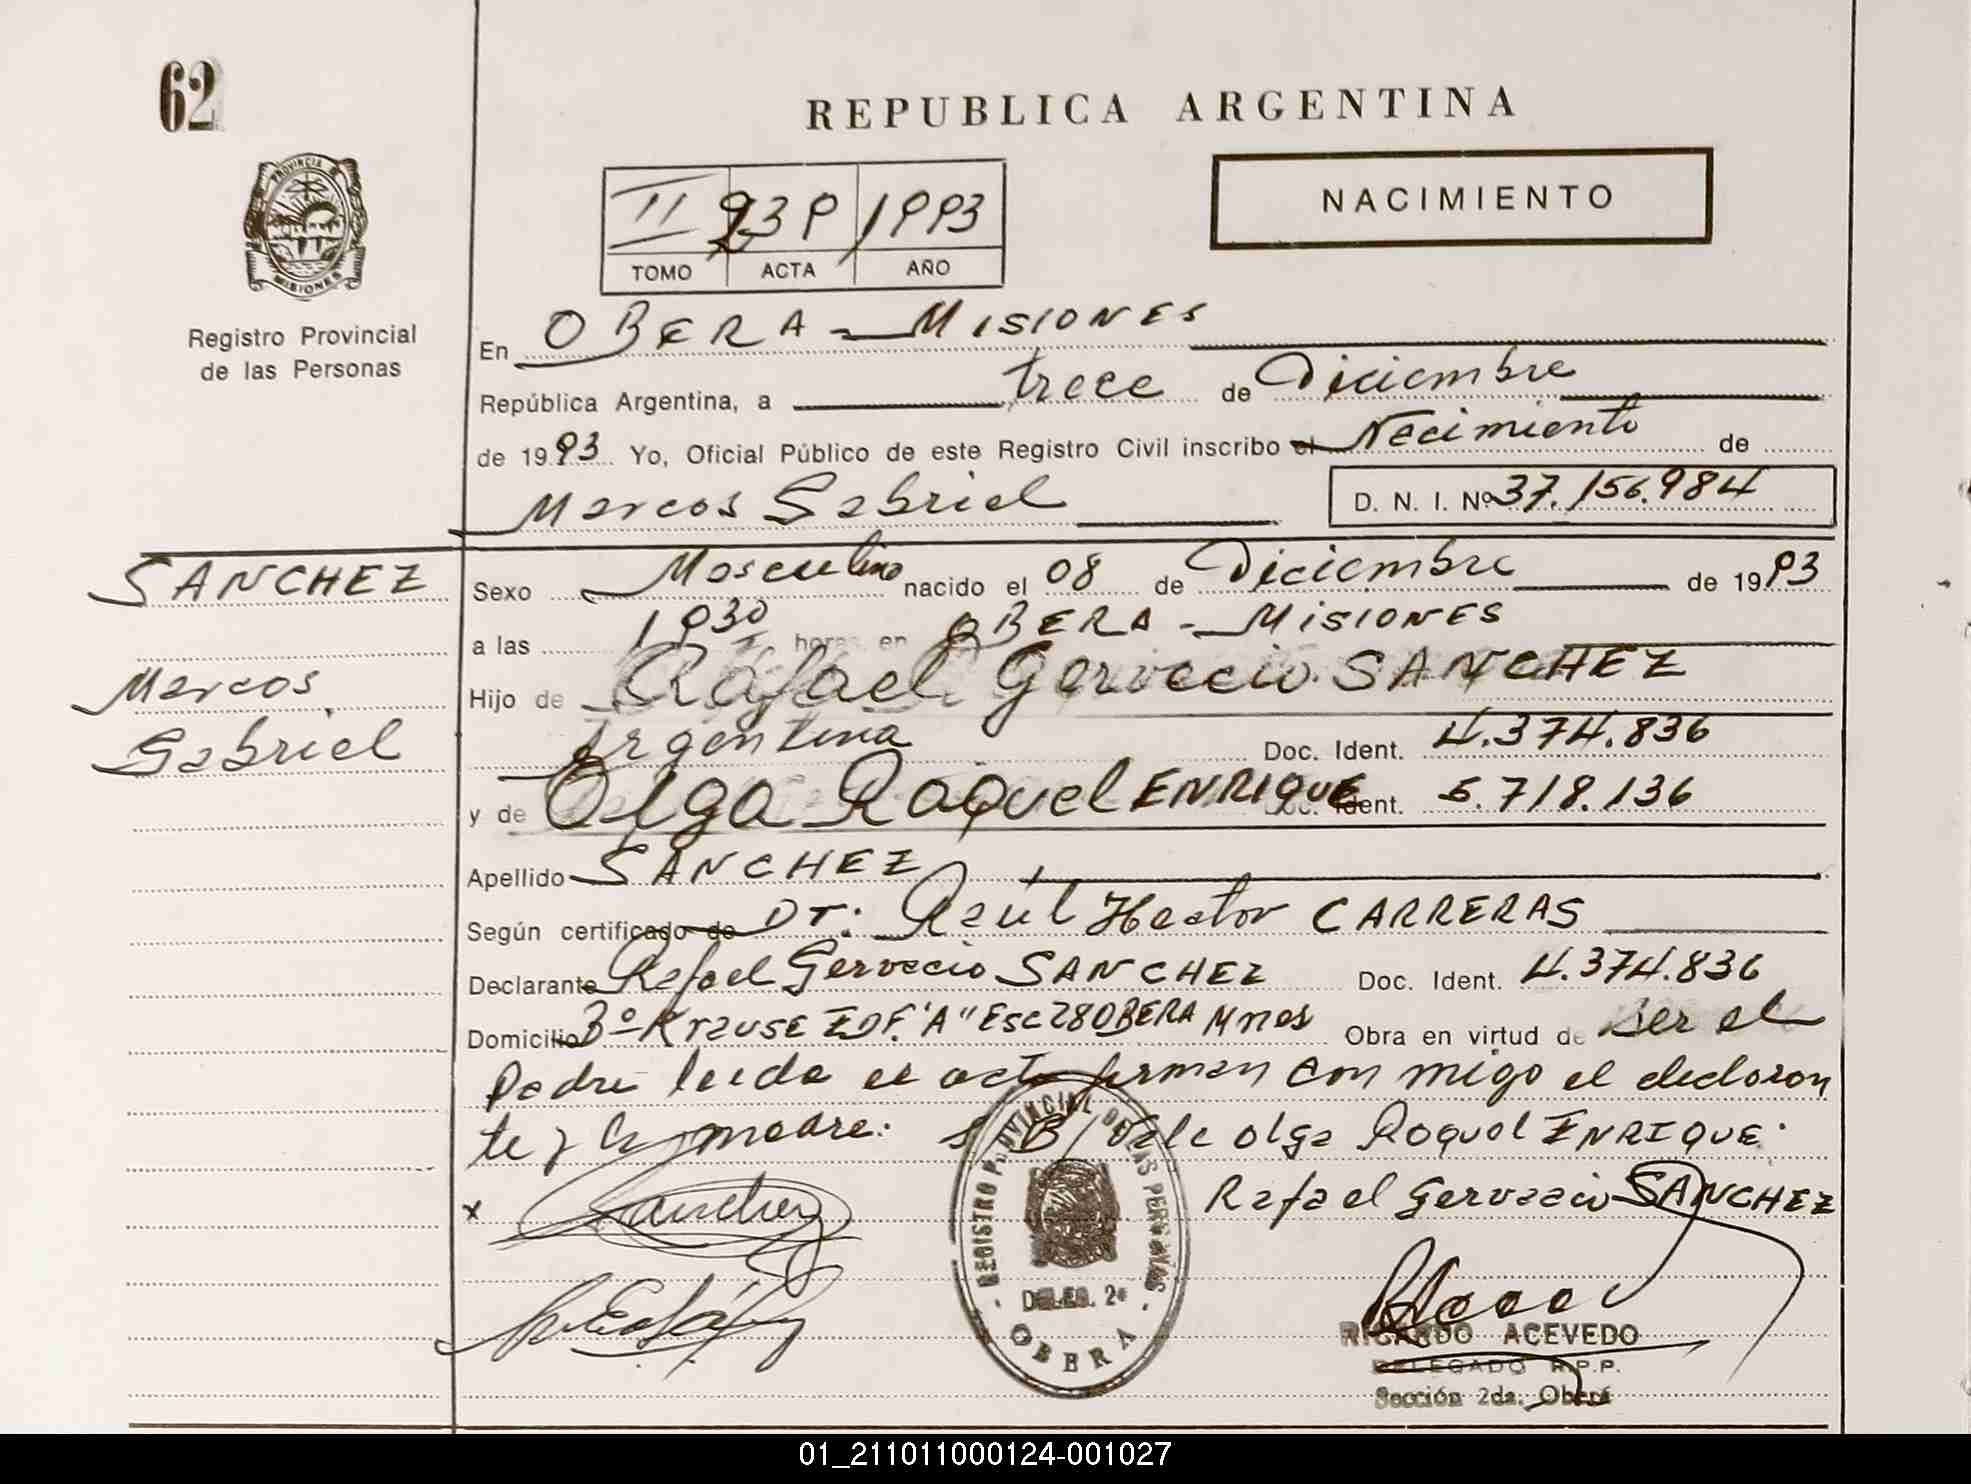 62
REPUBLICA ARGENTINA
PROVINCIA DE
MISIONES
Registro Provincial
de las Personas
NACIMIENTO
II 939 1993
TOMO ACTA AÑO
En OBERA - MISIONES
República Argentina, a trece de Diciembre
de 1993 Yo, Oficial Público de este Registro Civil inscribo el Nacimiento de
Marcos Gabriel D. N. I. Nº 37.156.984
SANCHEZ
Marcos
Gabriel
Sexo Masculino nacido el 08 de Diciembre de 1993
a las 1930 horas en OBERA - MISIONES
Hijo de Rafael Gervacio SANCHEZ
Argentina Doc. Ident. 4.374.836
y de Olga Raquel ENRIQUE Doc. Ident. 5.718.136
Apellido SANCHEZ
Según certificado de Dr: Raúl Hector CARRERAS
Declarante Rafael Gervacio SANCHEZ Doc. Ident. 4.374.836
Domicilio Bº Krause EDF. "A" Esc 28 OBERA Mnes Obra en virtud de Ser el
Padre leida el acta firman conmigo el declaran
te y la madre: S/B/ Vale Olga Raquel ENRIQUE.
Rafael Gervacio SANCHEZ
x Sanchez
REGISTRO PROVINCIAL DE LAS PERSONAS
DELEG. 2ª
OBERA
RICARDO ACEVEDO
DELEGADO R.P.P.
Sección 2da. Oberá
01_211011000124-001027